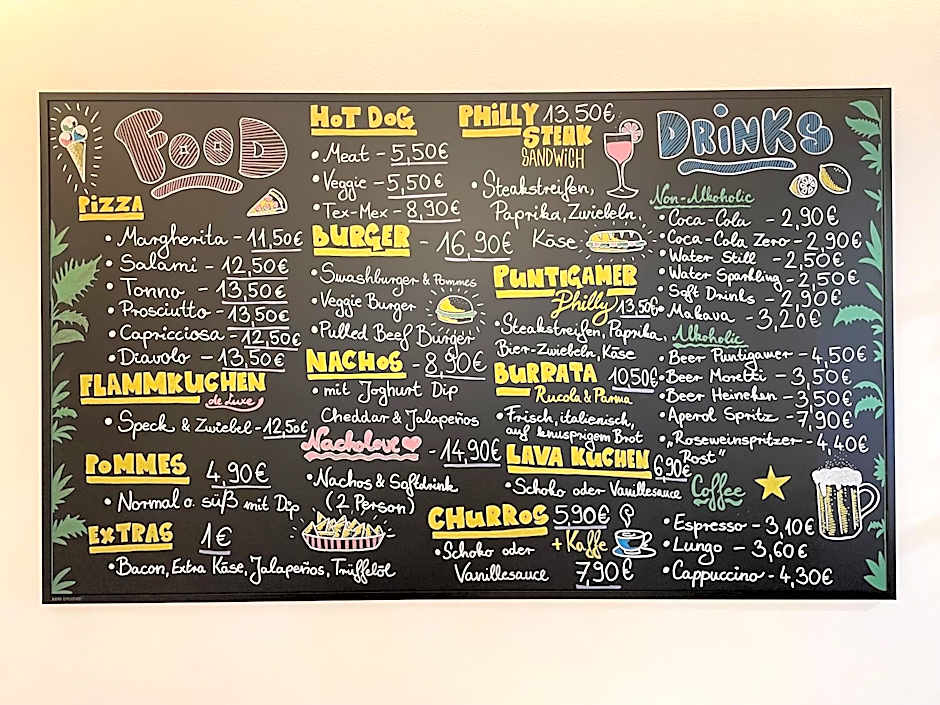 FOOD
PIZZA
• Margherita - 11,50€
• Salami - 12,50€
• Tonno - 13,50€
• Prosciutto - 13,50€
• Capricciosa - 12,50€
• Diavolo - 13,50€
FLAMMKUCHEN
de Luxe
• Speck & Zwiebel - 12,50€
POMMES 4,90€
• Normal o. süß mit Dip
EXTRAS 1€
• Bacon, Extra Käse, Jalapeños, Trüffelöl
HOT DOG
• Meat - 5,50€
• Veggie - 5,50€
• Tex-Mex - 8,90€
BURGER - 16,90€
• Swashburger & Pommes
• Veggie Burger
• Pulled Beef Burger
NACHOS - 8,90€
• mit Joghurt Dip
Cheddar & Jalapeños
Nacholove - 14,90€
• Nachos & Softdrink
(2 Person)
PHILLY 13,50€
STEAK
SANDWICH
• Steakstreifen,
Paprika, Zwiebeln,
Käse
PUNTIGAMER
Philly 13,50€
• Steakstreifen, Paprika,
Bier-Zwiebeln, Käse
BURRATA 10,50€
Rucola & Parma
• Frisch, italienisch,
auf knusprigem Brot
LAVA KUCHEN 6,90€
• Schoko oder Vanillesauce
CHURROS 5,90€
+ Kaffe
• Schoko oder
Vanillesauce 7,90€
DRINKS
Non-Alkoholic
• Coca-Cola - 2,90€
• Coca-Cola Zero - 2,90€
• Water Still - 2,50€
• Water Sparkling - 2,50€
• Soft Drinks - 2,90€
• Makava - 3,20€
Alkoholic
• Beer Puntigamer - 4,50€
• Beer Moretti - 3,50€
• Beer Heineken - 3,50€
• Aperol Spritz - 7,90€
• „Roseweinspritzer - 4,40€
Rost"
Coffee
• Espresso - 3,10€
• Lungo - 3,60€
• Cappuccino - 4,30€